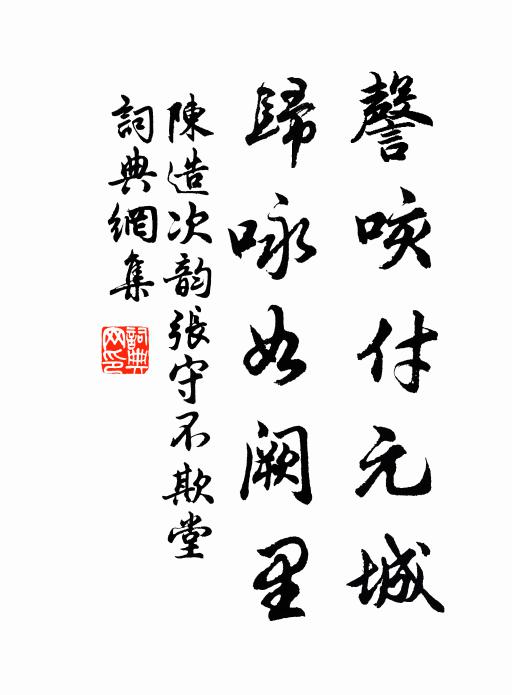 謦咳付元城
歸咏如闕里
陳造次韵張守不欺堂
詞典網集
詞典网印